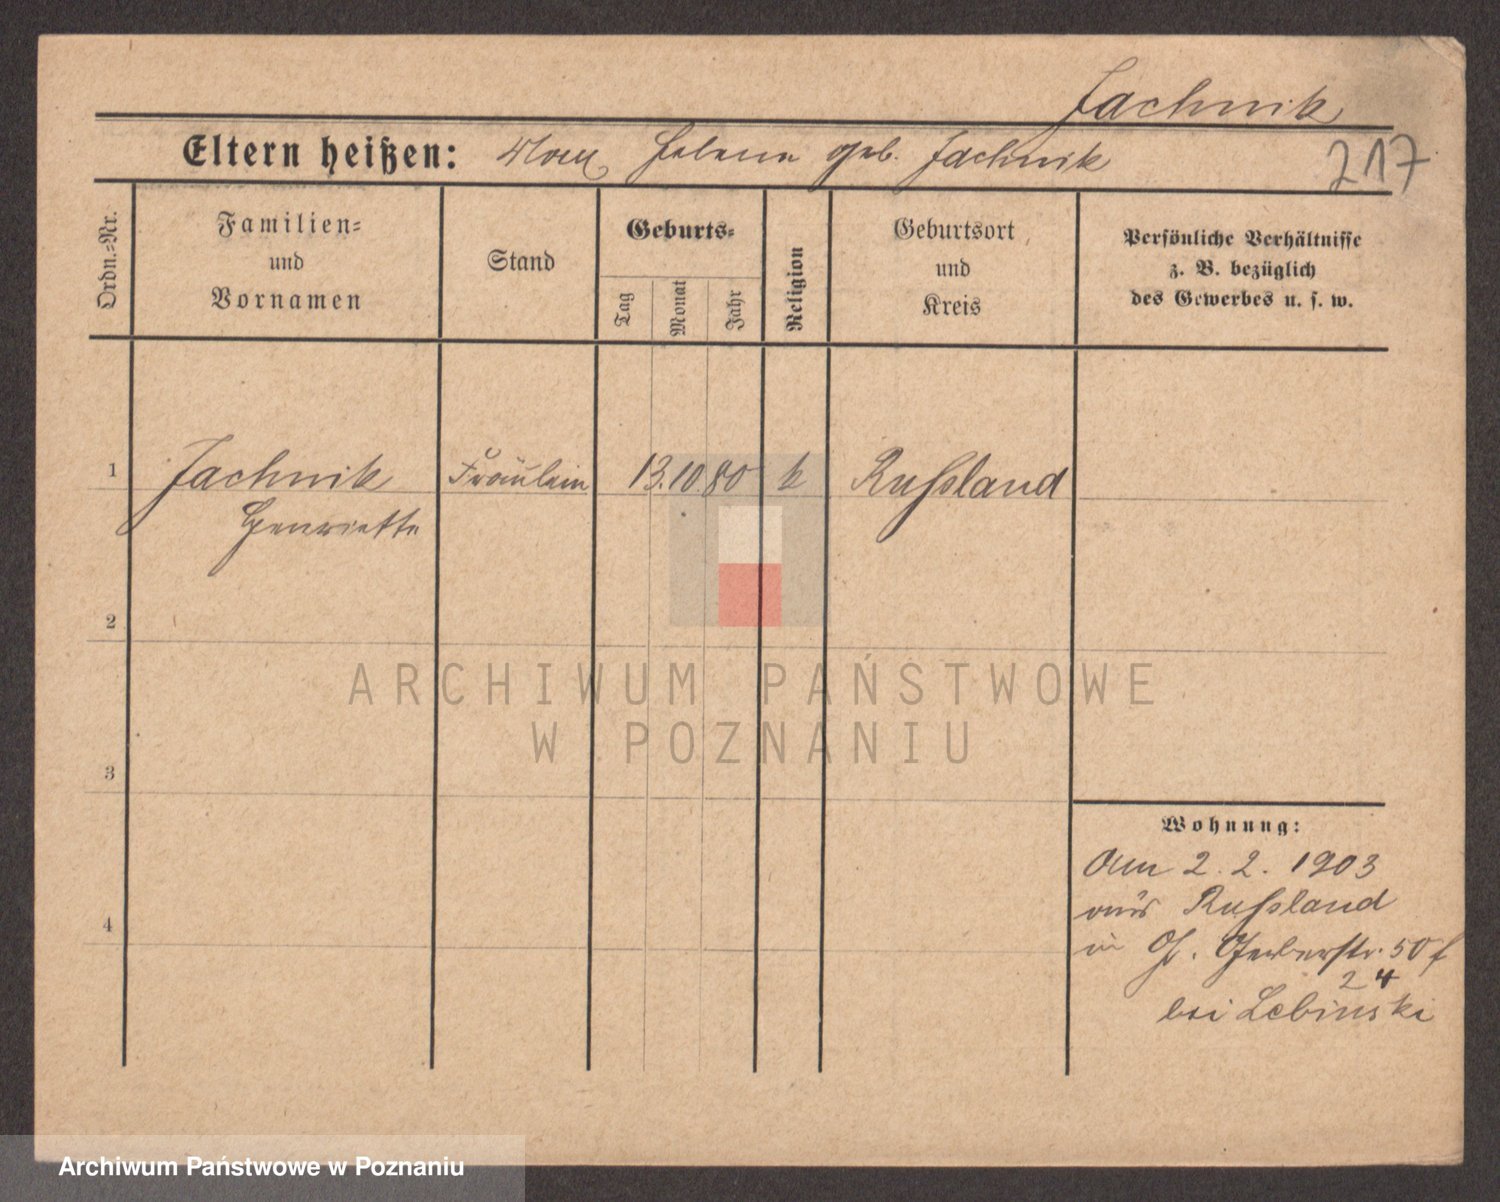 Jachnik
Eltern heißen: Helene geb. Jachnik
217
Ordn.-Nr.
Familien-
und
Vornamen
Stand
Geburts-
Tag
Monat
Jahr
Religion
Geburtsort
und
Kreis
Persönliche Verhältnisse
z. B. bezüglich
des Gewerbes u. s. w.
1 Jachnik Fräulein 13.10.80 k Russland
Henriette
2
ARCHIWUM PAŃSTWOWE
W POZNANIU
3
Wohnung:
Am 2. 2. 1903
aus Russland
4
in Gr. Gerberstr. 50 f
24
bei Lebinski
Archiwum Państwowe w Poznaniu